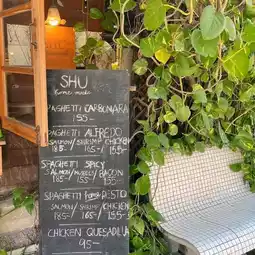 SHU
home made
SPAGHETTI CARBONARA
155.-
SPAGHETTI ALFREDO
SALMON / SHRIMP / CHICKEN
185.- 165.- 155.-
SPAGHETTI SPICY
SALMON / MUSSELS / BACON
185.- 155.- 155.-
SPAGHETTI PESTO
SALMON / SHRIMP / CHICKEN
185.- 165.- 155.-
CHICKEN QUESADILLA
95.-